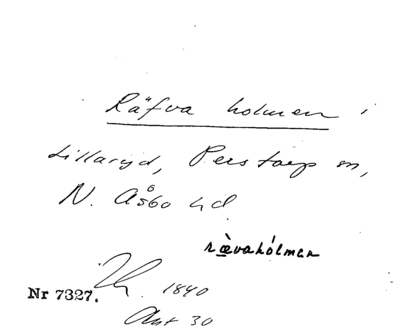 Räfva holmen i
Lillaryd, Perstorp sn,
N. Åsbo hd
rævahólmen
Nr 7327. 1840
Akt 30